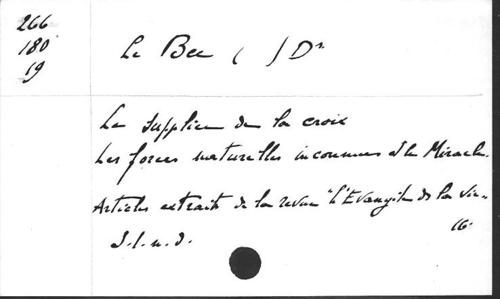 266
180
19
Le Bec ( ) Dr
Le supplice de la croix
Les forces naturelles inconnues et le Miracle.
Articles extraits de la revue "l'Evangile de la vie"
S.l.n.d. 16°